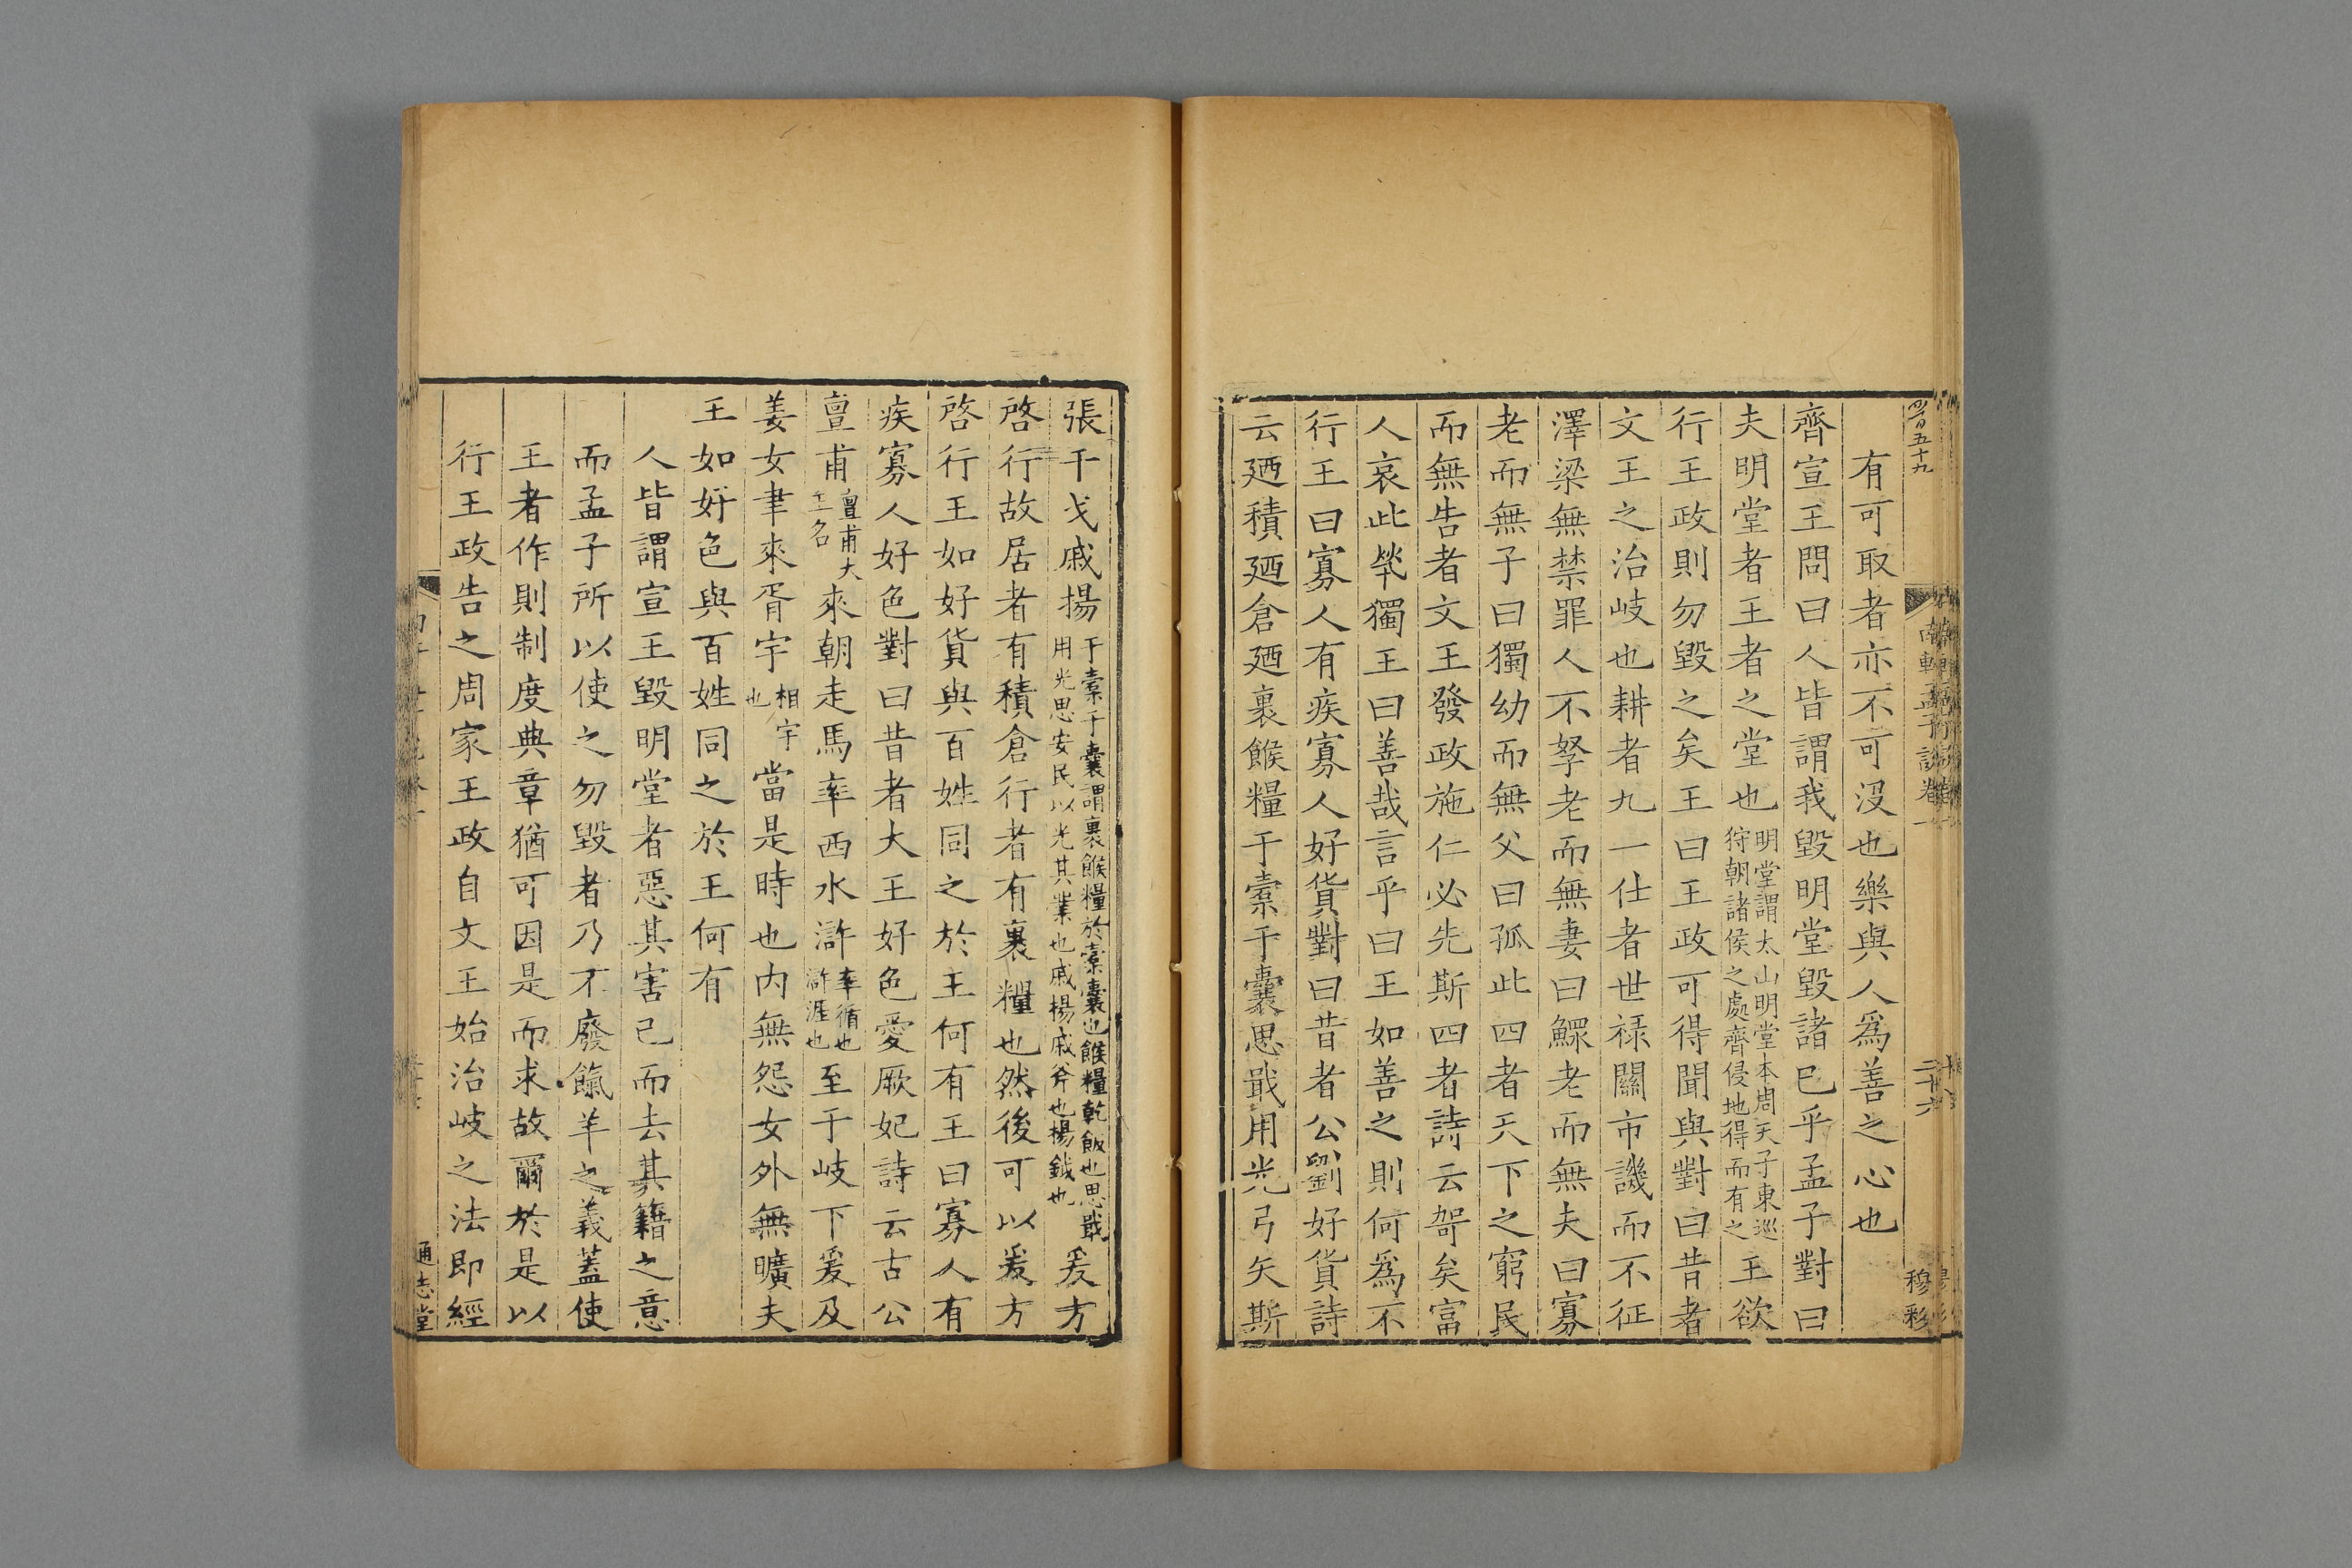 有可取者亦不可沒也樂與人爲善之心也
齊宣王問曰人皆謂我毀明堂毀諸已乎孟子對曰
夫明堂者王者之堂也明堂謂太山明堂本周天子東巡狩朝諸侯之處齊侵地得而有之王欲
行王政則勿毀之矣王曰王政可得聞與對曰昔者
文王之治岐也耕者九一仕者世祿關市譏而不征
澤梁無禁罪人不孥老而無妻曰鰥老而無夫曰寡
老而無子曰獨幼而無父曰孤此四者天下之窮民
而無告者文王發政施仁必先斯四者詩云哿矣富
人哀此煢獨王曰善哉言乎曰王如善之則何爲不
行王曰寡人有疾寡人好貨對曰昔者公劉好貨詩
云廼積廼倉廼裹餱糧于橐于囊思戢用光弓矢斯
張干戈戚揚于橐于囊謂裹餱糧於橐囊也餱糧乾飯也思戢用光思安民以光其業也戚揚戚斧也揚鉞也爰方
啓行故居者有積倉行者有裹糧也然後可以爰方
啓行王如好貨與百姓同之於王何有王曰寡人有
疾寡人好色對曰昔者大王好色愛厥妃詩云古公
亶甫亶甫大王名來朝走馬率西水滸率循也滸涯也至于岐下爰及
姜女聿來胥宇相宇也當是時也內無怨女外無曠夫
王如好色與百姓同之於王何有
人皆謂宣王毀明堂者惡其害己而去其籍之意
而孟子所以使之勿毀者乃不廢餼羊之義蓋使
王者作則制度典章猶可因是而求故爾於是以
行王政告之周家王政自文王始治岐之法即經
南軒孟子說卷一
二十六
穆彩
通志堂